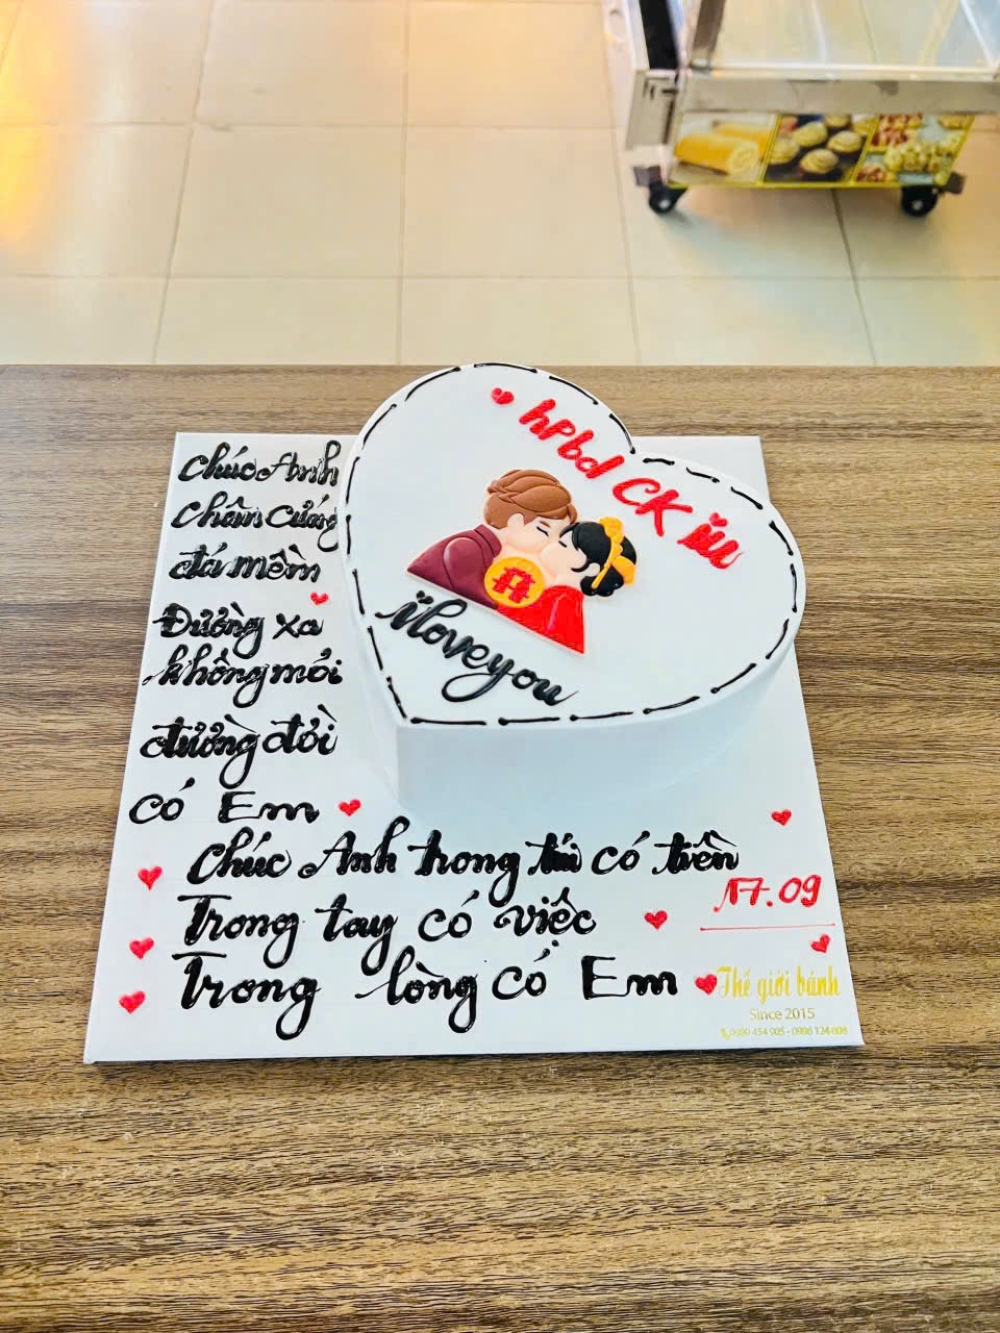 hpbd CK iu
i love you
Chúc Anh
chân cứng
đá mềm
Đường xa
không mỏi
đường đời
có Em
Chúc Anh trong túi có tiền
Trong tay có việc
Trong lòng có Em
17.09
Thế giới bánh
Since 2015